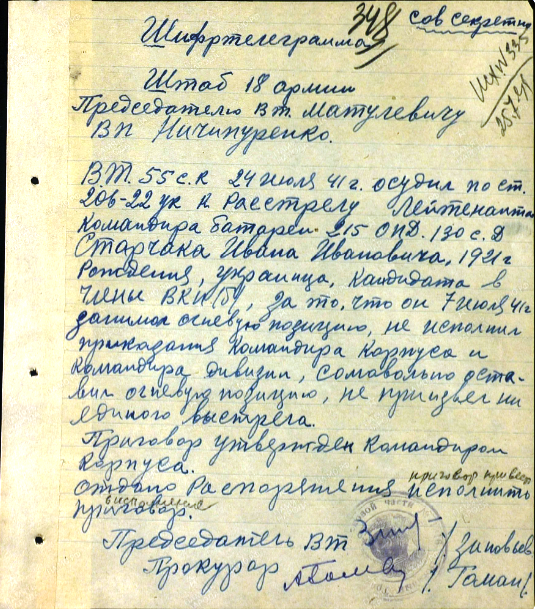 348
сов секретно
Шифртелеграмма
Исх N 335
25.7.41
Штаб 18 армии
Председателю Вт. Матулевичу
ВП Ничипуренко.
В.Т. 55 с.к 24 июля 41 г. осудил по ст.
206-22 ук к Расстрелу Лейтенанта
Командира батареи 215 ОПД. 130 с.Д
Старчака Ивана Ивановича, 1921 г
Рождения, украинца, Кандидата в
члены ВКП(б), за то, что он 7 июля 41 г
занимая огневую позицию, не исполнил
приказания Командира Корпуса и
Командира дивизии, самовольно оста-
вил огневую позицию, не произвел ни
единого выстрела.
Приговор утвержден Командиром
Корпуса.
приговор привести
Отдано Распоряжения исполнить
в исполнение
приговор.
Председатель ВТ Зиновьев
Прокурор